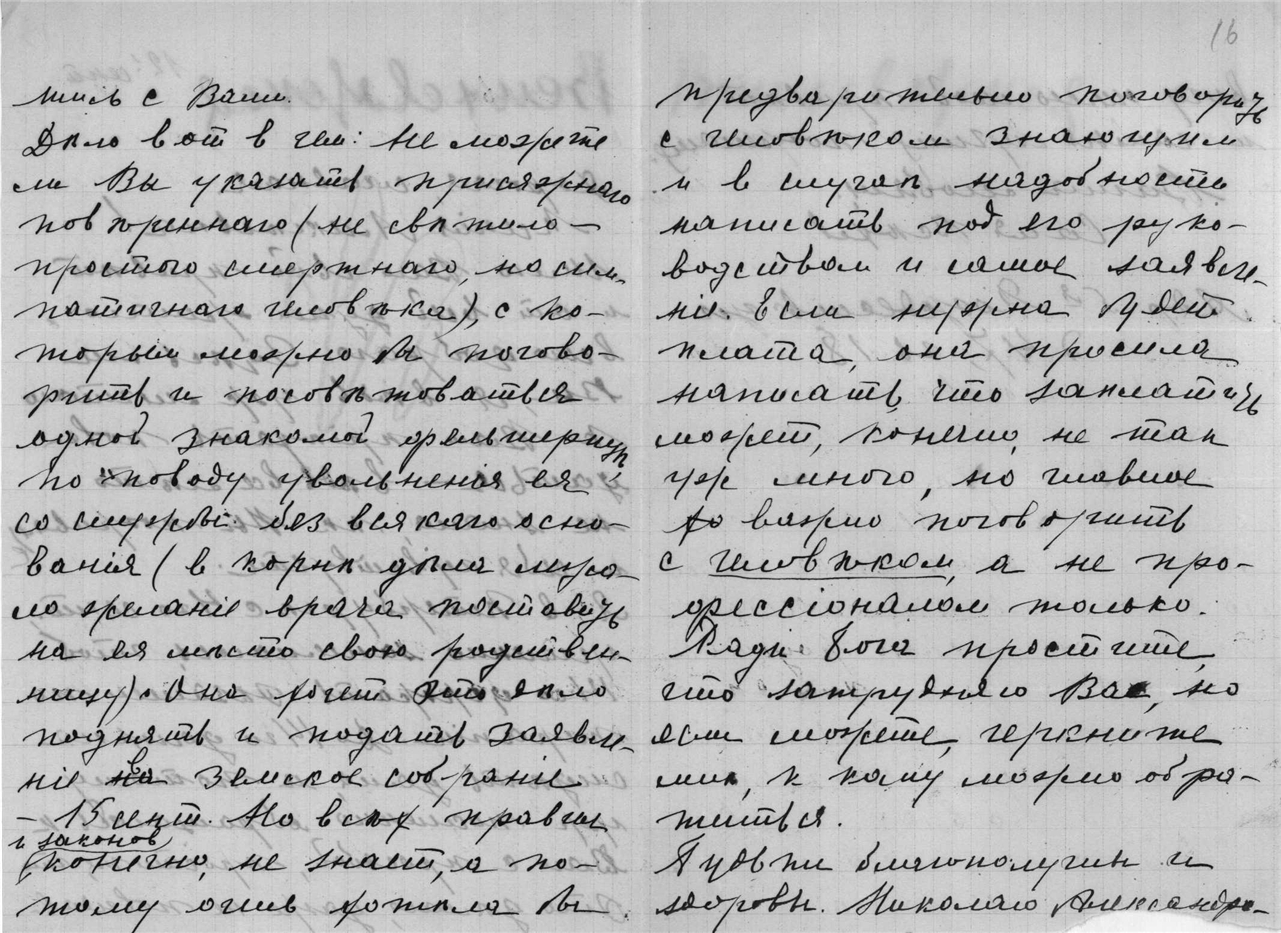 тись с Вами.
Дѣло вот в чем: Не можете
ли Вы указать присяжнаго
повѣреннаго (не свѣтило –
простого смертнаго, но сим-
патичнаго человѣка), с ко-
торым можно бы погово-
рить и посовѣтоваться
одной знакомой фельшерицѣ
по поводу увольнения ея
со службы без всякаго осно-
вания (в корнѣ дѣла лежа-
ло желание врача поставить
на ея мѣсто свою родствен-
ницу). Она хочет это дѣло
поднять и подать заявле-
ніе в Земское собраніе
– 15 сент. Но всѣх правил
и законов
конечно, не знает, а по-
тому очень хотѣла бы
16
предварительно поговорить
с человѣком знающим
и в случаѣ надобности
написать под его руко-
водством и самое заявле-
ніе. Если нужна будет
плата, она просила
написать, что заплатить
может, конечно, не так
уж много, но главное
важно поговорить
с человѣком, а не про-
фессіоналом только.
Ради Бога простите,
что затрудняю Вас, но
если можете, черкните
мнѣ, к кому можно обра-
титься.
Гудѣли благополучны и
здоровы. Николаю Александро-